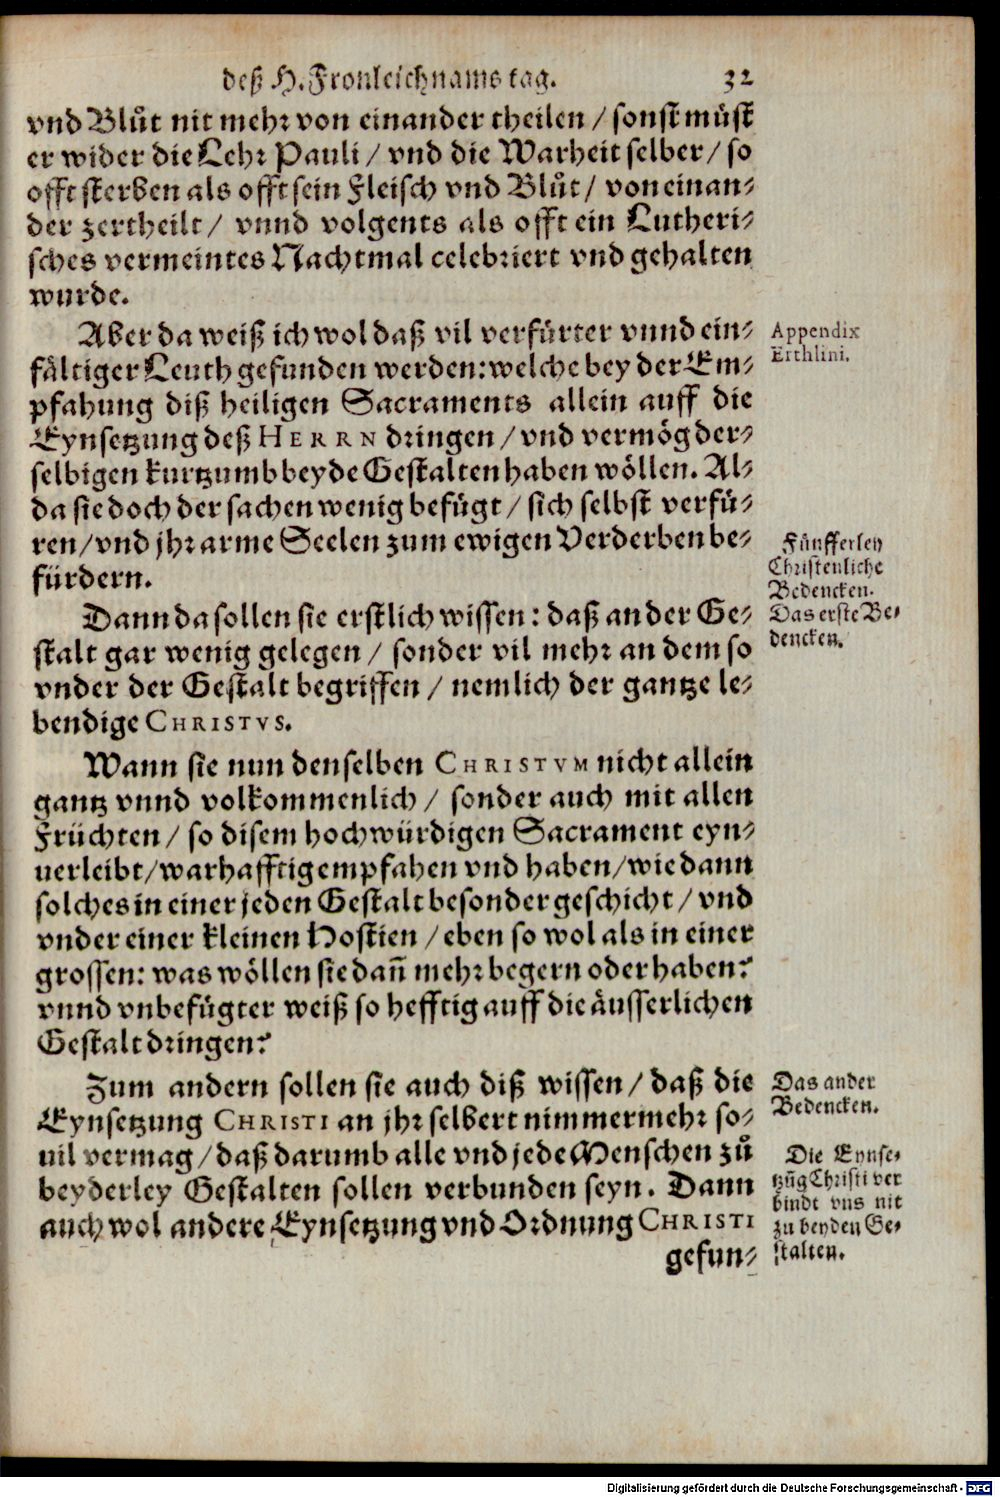 deß H. Fronleichnams tag. 32
vnd Blůt nit mehr von einander theilen / sonst můst
er wider die Lehr Pauli / vnd die Warheit selber / so
offt sterben als offt sein Fleisch vnd Blůt / von einan-
der zertheilt / vnnd volgents als offt ein Lutheri-
sches vermeintes Nachtmal celebriert vnd gehalten
wurde.
Aber da weiß ich wol daß vil verfürter vnnd ein-
fältiger Leuth gefunden werden: welche bey der Em-
pfahung diß heiligen Sacraments allein auff die
Eynsetzung deß HERRN dringen / vnd vermög der-
selbigen kurtzumb beyde Gestalten haben wöllen. Al-
da sie doch der sachen wenig befügt / sich selbst verfü-
ren / vnd jhr arme Seelen zum ewigen Verderben be-
fürdern.
Appendix
Erthlini.
Dann da sollen sie erstlich wissen: daß an der Ge-
stalt gar wenig gelegen / sonder vil mehr an dem so
vnder der Gestalt begriffen / nemlich der gantze le-
bendige CHRISTVS.
Fünfferley
Christenliche
Bedencken.
Das erste Be-
dencken.
Wann sie nun denselben CHRISTVM nicht allein
gantz vnnd volkommenlich / sonder auch mit allen
Früchten / so disem hochwürdigen Sacrament eyn-
uerleibt / warhafftig empfahen vnd haben / wie dann
solches in einer jeden Gestalt besonder geschicht / vnd
vnder einer kleinen Hostien / eben so wol als in einer
grossen: was wöllen sie dañ mehr begern oder haben?
vnnd vnbefügter weiß so hefftig auff die äusserlichen
Gestalt dringen?
Zum andern sollen sie auch diß wissen / daß die
Eynsetzung CHRISTI an jhr selbert nimmermehr so-
uil vermag / daß darumb alle vnd jede Menschen zů
beyderley Gestalten sollen verbunden seyn. Dann
auch wol andere Eynsetzung vnd Ordnung CHRISTI
gefun-
Das ander
Bedencken.
Die Eynse-
tzũg Christi ver
bindt vns nit
zu beyden Ge-
stalten.
Digitalisierung gefördert durch die Deutsche Forschungsgemeinschaft - DFG